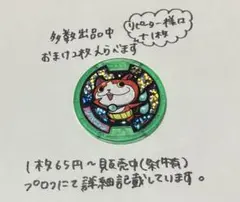 多数出品中
おまけ2枚えらべます
リピーター様は
+1枚
1枚65円~販売中(条件有)
プロフにて詳細記載しています。